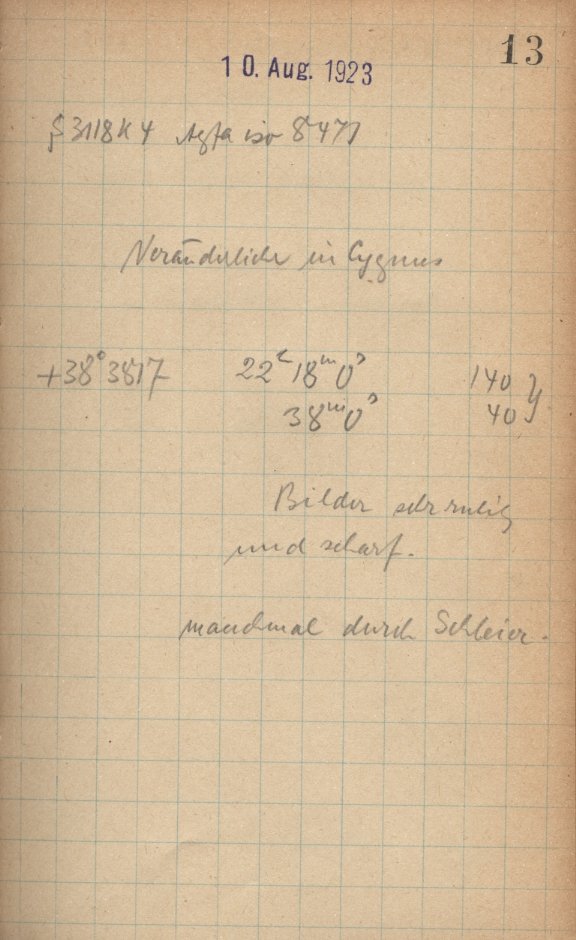 13
10. Aug. 1923
S 3118 K 4 Agfa iso 8477
Veränderliche in Cygnus
+38° 3817 22ʰ 18ᵐ 0ˢ 140
38ᵐ 0ˢ 40
Bilder sehr ruhig
und scharf.
manchmal durch Schleier.